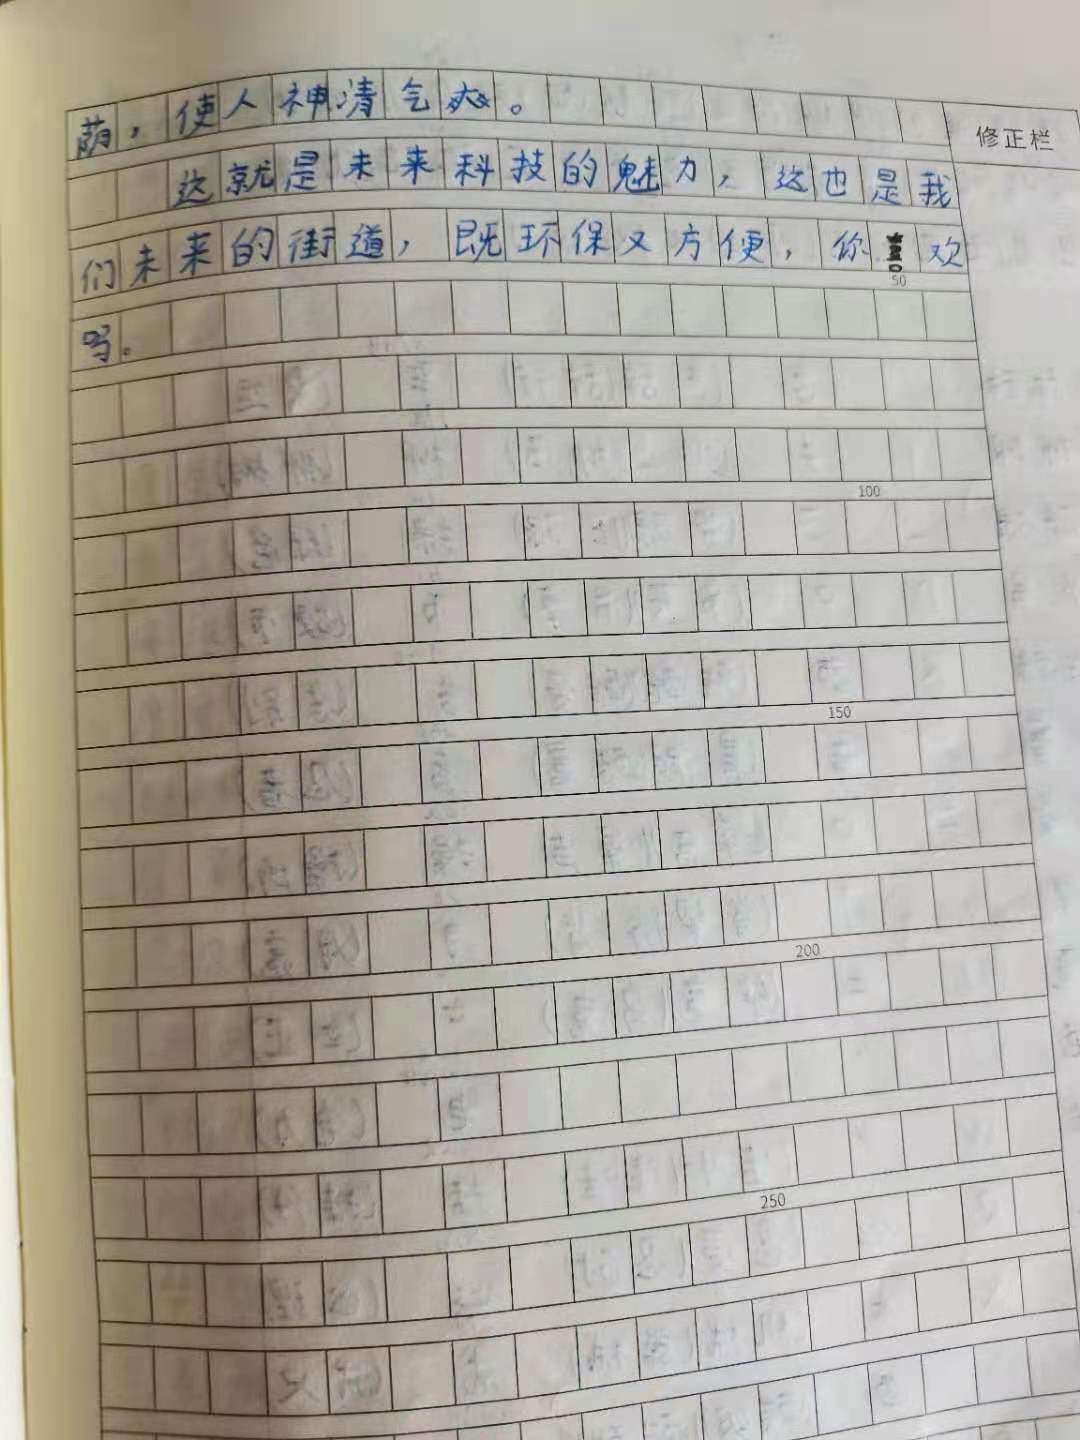 荫，使人神清气爽。
修正栏
这就是未来科技的魅力，这也是我
们未来的街道，既环保又方便，你喜欢
50
吗。
100
150
200
250